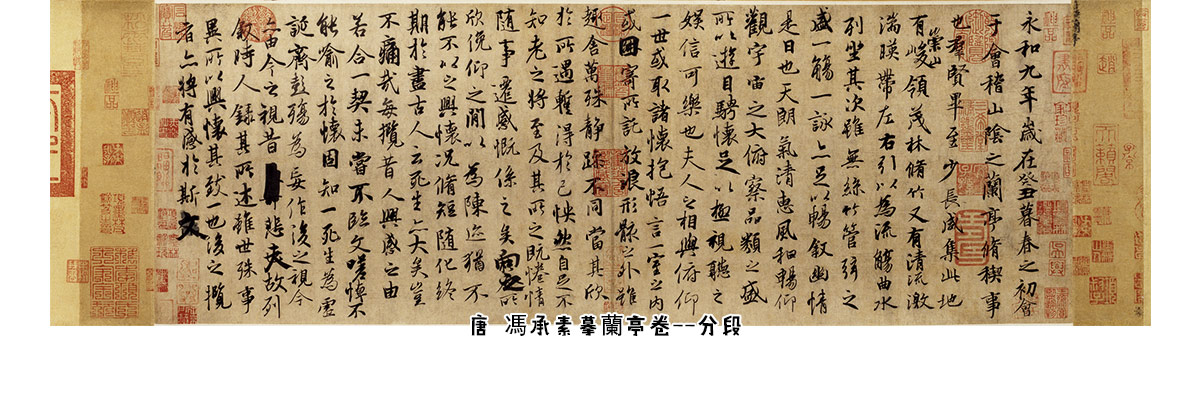 永和九年歲在癸丑暮春之初會
于會稽山陰之蘭亭脩稧事
也羣賢畢至少長咸集此地
有崇山峻領茂林脩竹又有清流激
湍暎帶左右引以為流觴曲水
列坐其次雖無絲竹管弦之
盛一觴一詠亦足以暢敘幽情
是日也天朗氣清惠風和暢仰
觀宇宙之大俯察品類之盛
所以遊目騁懷足以極視聽之
娛信可樂也夫人之相與俯仰
一世或取諸懷抱悟言一室之內
或因寄所託放浪形骸之外雖
趣舍萬殊靜躁不同當其欣
於所遇暫得於己怏然自足不
知老之將至及其所之既惓情
隨事遷感慨係之矣向之所
欣俛仰之間以為陳迹猶不
能不以之興懷況脩短隨化終
期於盡古人云死生亦大矣豈
不痛哉每攬昔人興感之由
若合一契未嘗不臨文嗟悼不
能喻之於懷固知一死生為虛
誕齊彭殤為妄作後之視今
亦由今之視昔悲夫故列
敘時人錄其所述雖世殊事
異所以興懷其致一也後之攬
者亦將有感於斯文
唐 馮承素摹蘭亭卷--分段